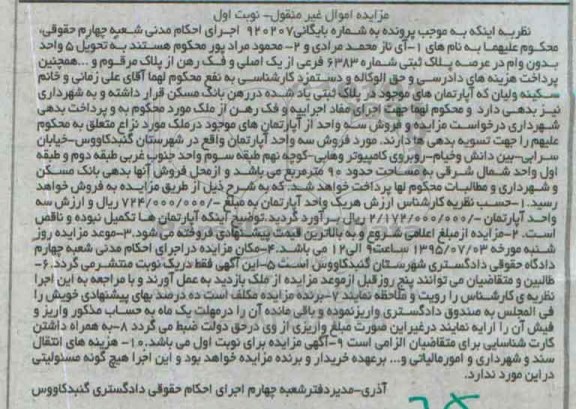 مزایده اموال غیر منقول- نوبت اول
نظر به اینکه به موجب پرونده به شماره بایگانی ۹۲۰۲۰۷ اجرای احکام مدنی شعبه چهارم حقوقی،
محکوم علیهما به نام های ۱-آی ناز محمد مرادی و ۲- محمود مراد پور محکوم هستند به تحویل ۵ واحد
بدون وام در عرصه پلاک ثبتی شماره ۶۳۸۳ فرعی از یک اصلی و فک رهن از پلاک مرقوم و ...همچنین
پرداخت هزینه های دادرسی و حق الوکاله و دستمزد کارشناسی به نفع محکوم لهما آقای علی زمانی و خانم
سکینه ولیان که آپارتمان های موجود در پلاک ثبتی یاد شده در رهن بانک مسکن قرار داشته و به شهرداری
نیز بدهی دارد و محکوم لهما جهت اجرای مفاد اجراییه و فک رهن از ملک مورد محکوم به و پرداخت بدهی
شهرداری درخواست مزایده و فروش سه واحد از آپارتمان های موجود در ملک مورد نزاع متعلق به محکوم
علیهم را جهت تسویه بدهی ها دارند. مورد فروش سه واحد آپارتمان واقع در شهرستان گنبدکاووس-خیابان
سرابی-بین دانش و خیام-روبروی کامپیوتر وهابی-کوچه نهم طبقه سوم واحد جنوب غربی طبقه دوم و طبقه
اول واحد شمال شرقی به مساحت حدود ۹۰ مترمربع می باشد و از محل فروش آنها بدهی بانک مسکن
و شهرداری و مطالبات محکوم لها پرداخت خواهد شد. که به شرح ذیل از طریق مزایده به فروش خواهد
رسید. ۱-حسب نظریه کارشناس ارزش هریک واحد آپارتمان به مبلغ -/۷۲۴/۰۰۰/۰۰۰ ریال و ارزش سه
واحد آپارتمان -/۲/۱۷۲/۰۰۰/۰۰۰ ریال برآورد گردید.توضیح اینکه آپارتمان ها تکمیل نبوده و ناقص
است. ۲-مزایده از مبلغ اعلامی شروع و به بالاترین قیمت پیشنهادی فروخته می شود.۳-موعد مزایده روز
شنبه مورخه ۱۳۹۵/۰۷/۰۳ ساعت ۹ الی ۱۲ می باشد.۴-مکان مزایده در اجرای احکام مدنی شعبه چهارم
دادگاه حقوقی دادگستری شهرستان گنبدکاووس است ۵-این آگهی فقط در یک نوبت منتشر می گردد.۶-
طالبین و متقاضیان می توانند پنج روز قبل از موعد مزایده از ملک بازدید به عمل آورند و با مراجعه به این اجرا
نظریه ی کارشناس را رویت و ملاحظه نمایند ۷-برنده مزایده مکلف است ده درصد بهای پیشنهادی خویش را
فی المجلس به صندوق دادگستری واریز نموده و باقی مانده آن را در مهلت یک ماه به حساب مذکور واریز و
فیش آن را ارایه نمایند در غیر این صورت مبلغ واریزی از وی در حق دولت ضبط می گردد ۸-به همراه داشتن
کارت شناسایی برای متقاضیان الزامی است ۹-آگهی مزایده برای نوبت اول می باشد.۱۰- هزینه های انتقال
سند و شهرداری و امور مالیاتی و... برعهده خریدار و برنده مزایده خواهد بود و این اجرا هیچ گونه مسئولیتی
در این مورد ندارد.
آذری-مدیر دفتر شعبه چهارم اجرای احکام حقوقی دادگستری گنبدکاووس